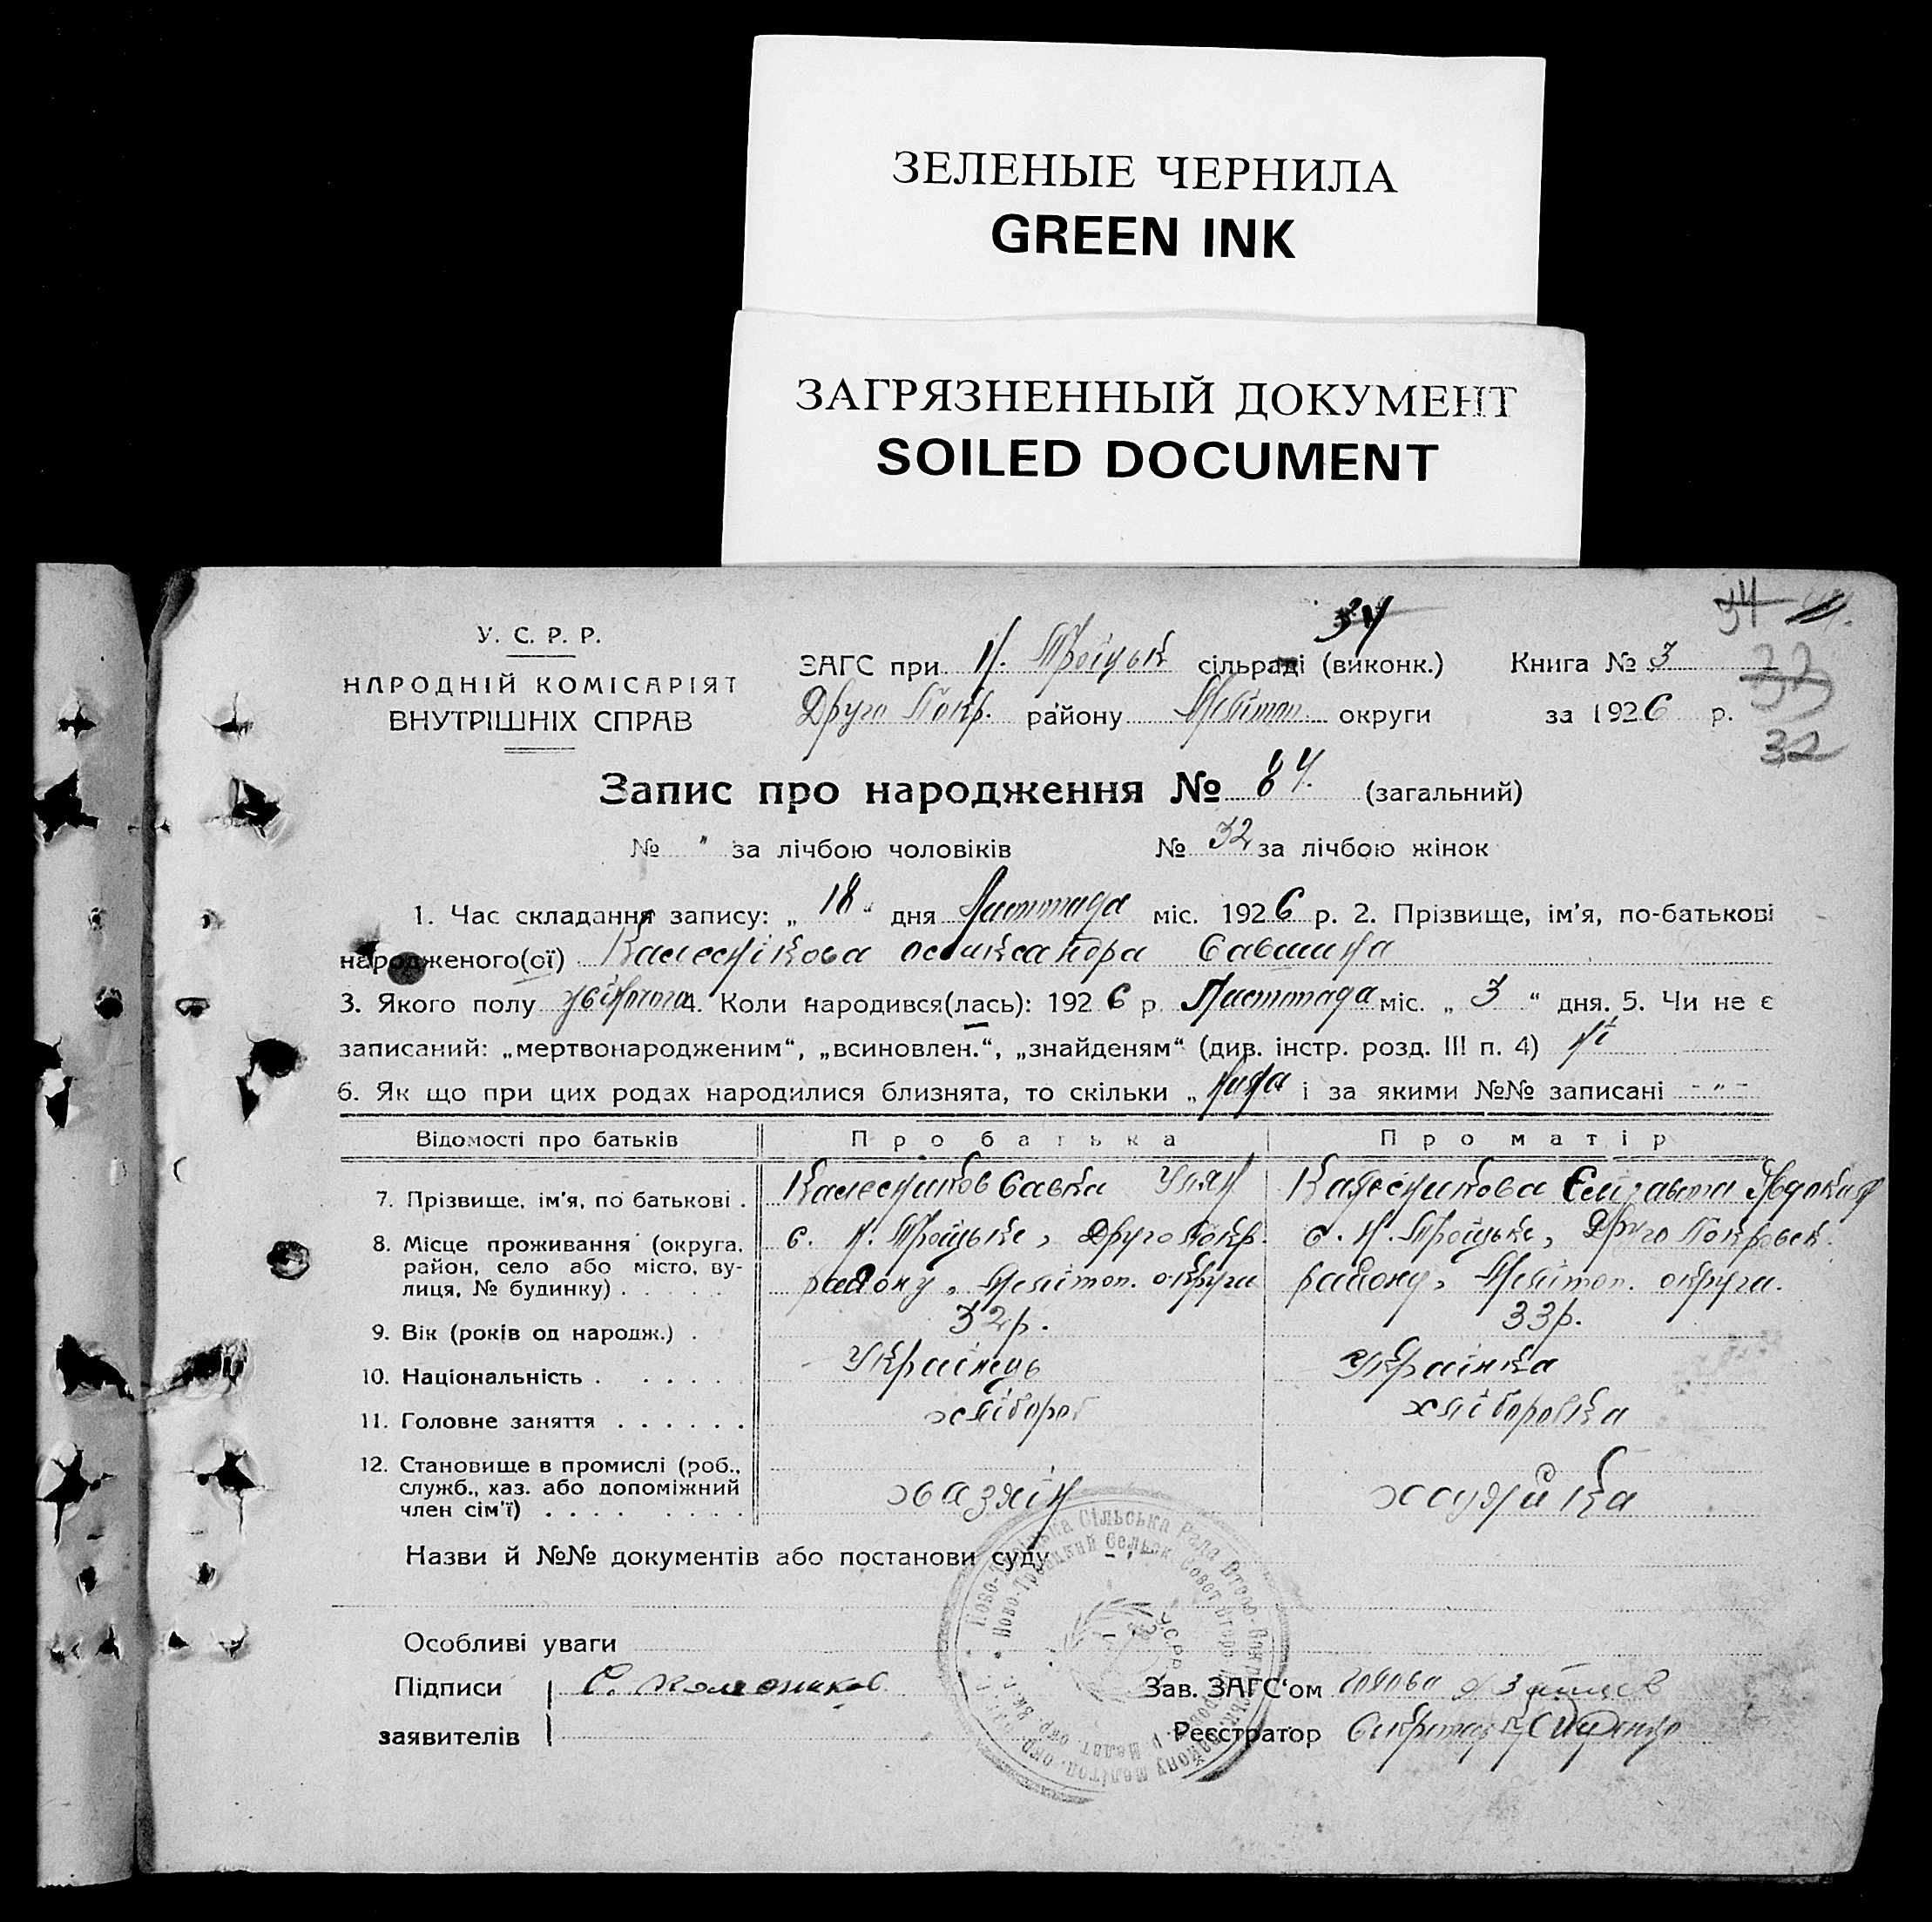 ЗЕЛЕНЫЕ ЧЕРНИЛА
GREEN INK
ЗАГРЯЗНЕННЫЙ ДОКУМЕНТ
SOILED DOCUMENT
34
У. С. Р. Р.
НАРОДНІЙ КОМІСАРІЯТ
ВНУТРІШНІХ СПРАВ
ЗАГС при Н. Троіцьк сільраді (виконк.) Книга № 3
Друго Покр. району Мелітоп округи за 1926 р.
32
Запис про народження № 84. (загальний)
№ " за лічбою чоловіків № 32 за лічбою жінок
1. Час складання запису: „ 18 “ дня Листопада міс. 1926 р. 2. Прізвище, ім'я, по-батькові
народженого(ої) Калєснікова Савишна
3. Якого полу жіночого 4. Коли народився(лась): 1926 р. Листопада міс. „ 3 “ дня. 5. Чи не є
записаний: „мертвонародженим“, „всиновлен.“, „знайденям“ (див. інстр. розд. III п. 4) ні
6. Як що при цих родах народилися близнята, то скільки „ і за якими №№ записані - " -
Відомості про батьків Про батька Про матір
7. Прізвище, ім'я, по батькові . Калєсников Савка Улян Калєсникова Єлизавета Явдоким
8. Місце проживання (округа, район, село або місто, вулиця, № будинку) . . . . . с. Н. Троіцьке, Друго Покр. с. Н. Троіцьке, Друго Покровськ.
району, Мелітоп. округи району, Мелітоп. округи.
9. Вік (років од народж.) . 32 р. 33 р.
10. Національність . . . . . . Українець Українка
11. Головне заняття . . . . . . хлібороб хліборобка
12. Становище в промислі (роб., служб., хаз. або допоміжний член сім'ї) . . . . . . . . хазяїн хазяйка
Назви й №№ документів або постанови суду - " -
Особливі уваги
Підписи С. Колесников Зав. ЗАГС'ом голова Зайцев
заявителів Реєстратор Секретар
Ново-Троїцька Сільська Рада Второ-Покровського району Мелітоп. окр.
Ново-Троицкий Сельск. Совет Второ-Покровск. р. Мелит. окр.
УСРР